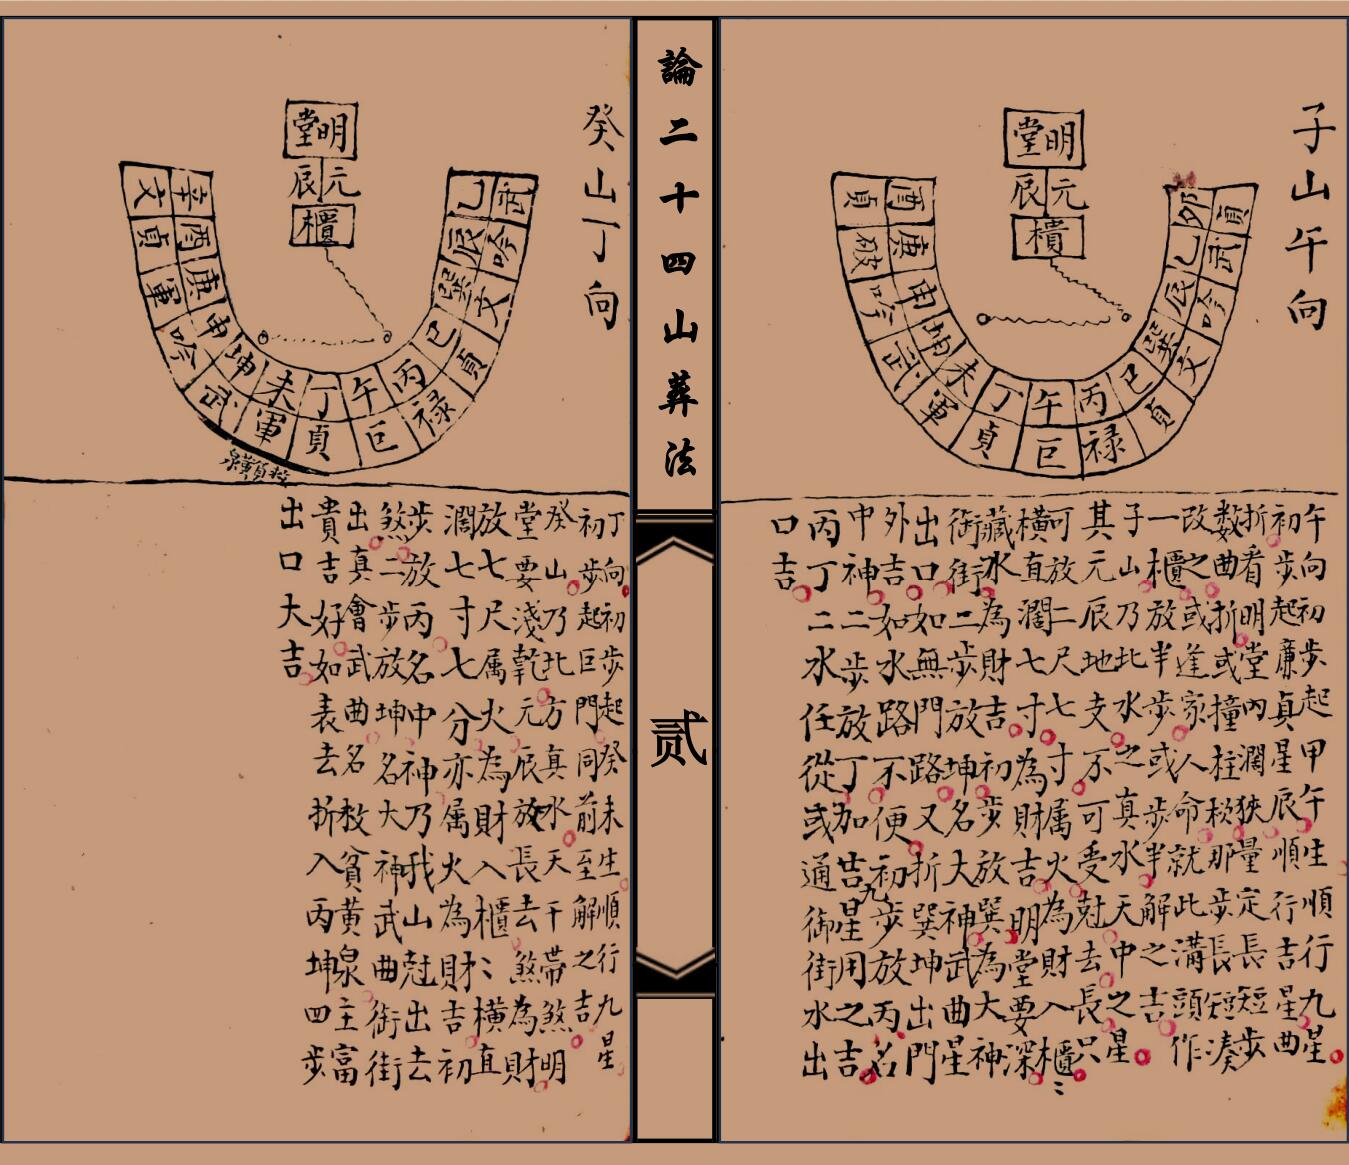 子山午向
明堂
元辰
櫃
卯乙辰巽巳丙午丁未坤申庚酉
貞武吟文貞禄巨貞軍武吟破貞
午向初步起甲午生順行九星
初步起廉真星辰順行吉星曲
折看明堂內濶狹量定長短步
数曲折或撞柱椒那步長短湊
改之或進家人命就此溝頭作
一櫃放半步或步半解之吉
子山乃北水之真水天中之星
其元辰地支不可受尅去長只
可放二尺七寸属火為財入櫃〻
横直濶七寸為財吉明堂要深
藏水為財吉初步放巽為大神
街街二步放坤名大神武曲星
出口如無門路又折巽坤出門
外吉如水路不便初步放丙名
中神二步放丁加九吉星用之吉
丙丁二水任從或通御街水出
口吉
論二十四山葬法
贰
癸山丁向
明堂
元辰
櫃
乙辰巽巳丙午丁未坤申庚酉辛
武吟文貞禄巨貞軍武吟軍貞文
救貧黄泉
丁向初步起癸未生順行九星
初步起巨門同前至解之吉
癸山乃北方真水天干帶煞明
堂要淺乾元辰放長去煞為財
放七尺属火為財入櫃〻横直
濶七寸七分亦属火為財吉初
步放丙名中神乃我山尅出去
煞二步放坤名大神武曲街街
出真會武曲名救貧黄泉主富
貴吉好如表去折入丙坤四步
出口大吉